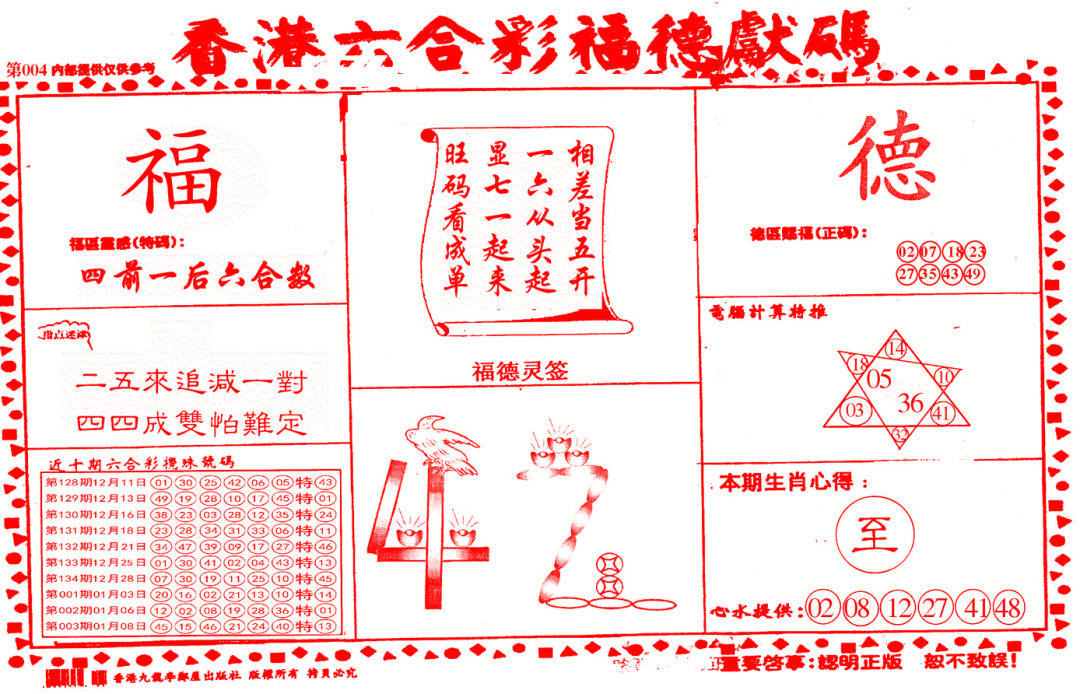 香港六合彩福德獻碼
第004 内部提供仅供参考
福
福區靈感(特碼):
四前一后六合数
指点迷津
二五來追減一對
四四成雙怕難定
近十期六合彩攪珠號碼
第128期12月11日 01 30 25 42 06 05 特 43
第129期12月13日 49 19 28 10 17 45 特 01
第130期12月16日 38 23 03 28 12 35 特 24
第131期12月18日 23 28 34 31 33 06 特 11
第132期12月21日 34 47 39 09 17 27 特 46
第133期12月25日 01 30 41 02 04 43 特 13
第134期12月28日 07 30 19 11 25 10 特 45
第001期01月03日 20 16 02 21 13 10 特 14
第002期01月06日 12 02 08 19 28 36 特 01
第003期01月08日 45 15 46 21 24 40 特 13
相差当五开
一六从头起
显七一起来
旺码看成单
福德灵签
德
德區賜福(正碼):
02 07 18 23
27 35 43 49
電腦計算特推
14
18
10
05
36
03
41
32
本期生肖心得:
至
心水提供: 02 08 12 27 41 48
香港九龍李鄭屋出版社 版權所有 拷貝必究
重要啓事:認明正版 恕不致誤!